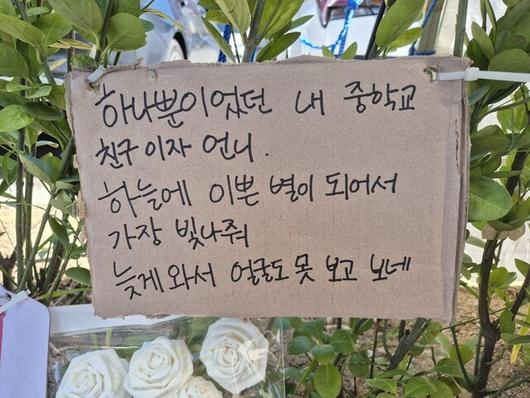 하나뿐이었던 내 중학교
친구이자 언니.
하늘에 이쁜 별이 되어서
가장 빛나줘
늦게 와서 얼굴도 못 보고 보네